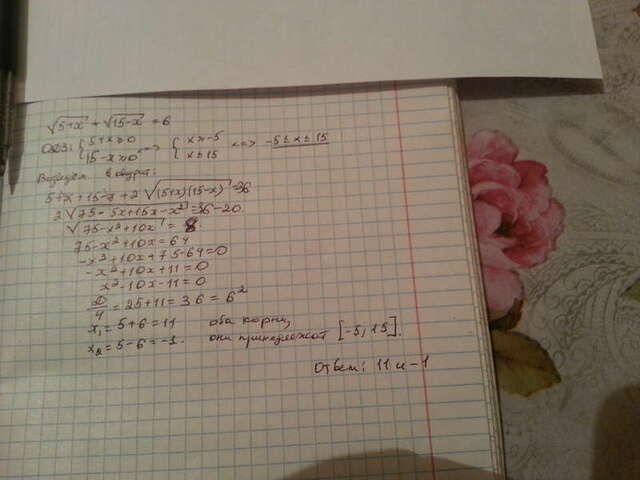 √5+x + √15-x = 6
ОДЗ: { 5+x≥0 15-x≥0 => { x≥-5 x≤15 <=> -5≤x≤15
Возведем в квадрат:
5+x+15-x+2√(5+x)(15-x) = 36
2√75-5x+15x-x² = 36-20
√75-x²+10x = 8
75-x²+10x=64
-x²+10x+75-64=0
-x²+10x+11=0
x²-10x-11=0
D/4 = 25+11=36=6²
x₁=5+6=11 оба корни,
x₂=5-6=-1. они принадлежат [-5; 15].
Ответ: 11 и -1